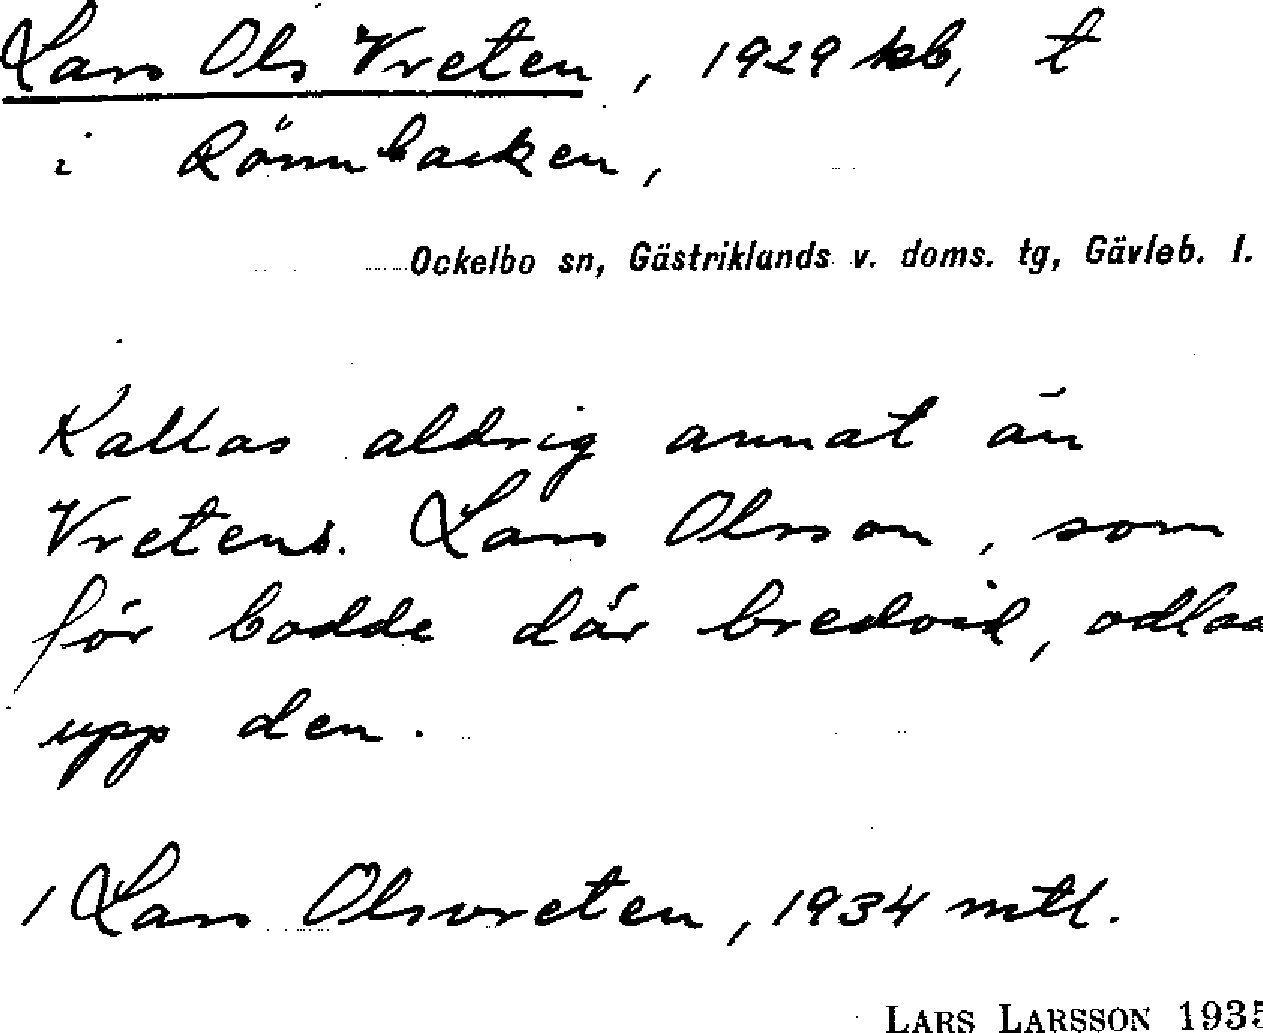 Lars Ols Vreten, 1929 kb, t
i Rönnbacken,
Ockelbo sn, Gästriklands v. doms. tg, Gävleb. l.
Kallas aldrig annat än
Vretens. Lars Olsson, som
för bodde där bredvid, odlaa
upp den.
1 Lars Olsvreten, 1934 mtl.
LARS LARSSON 1935